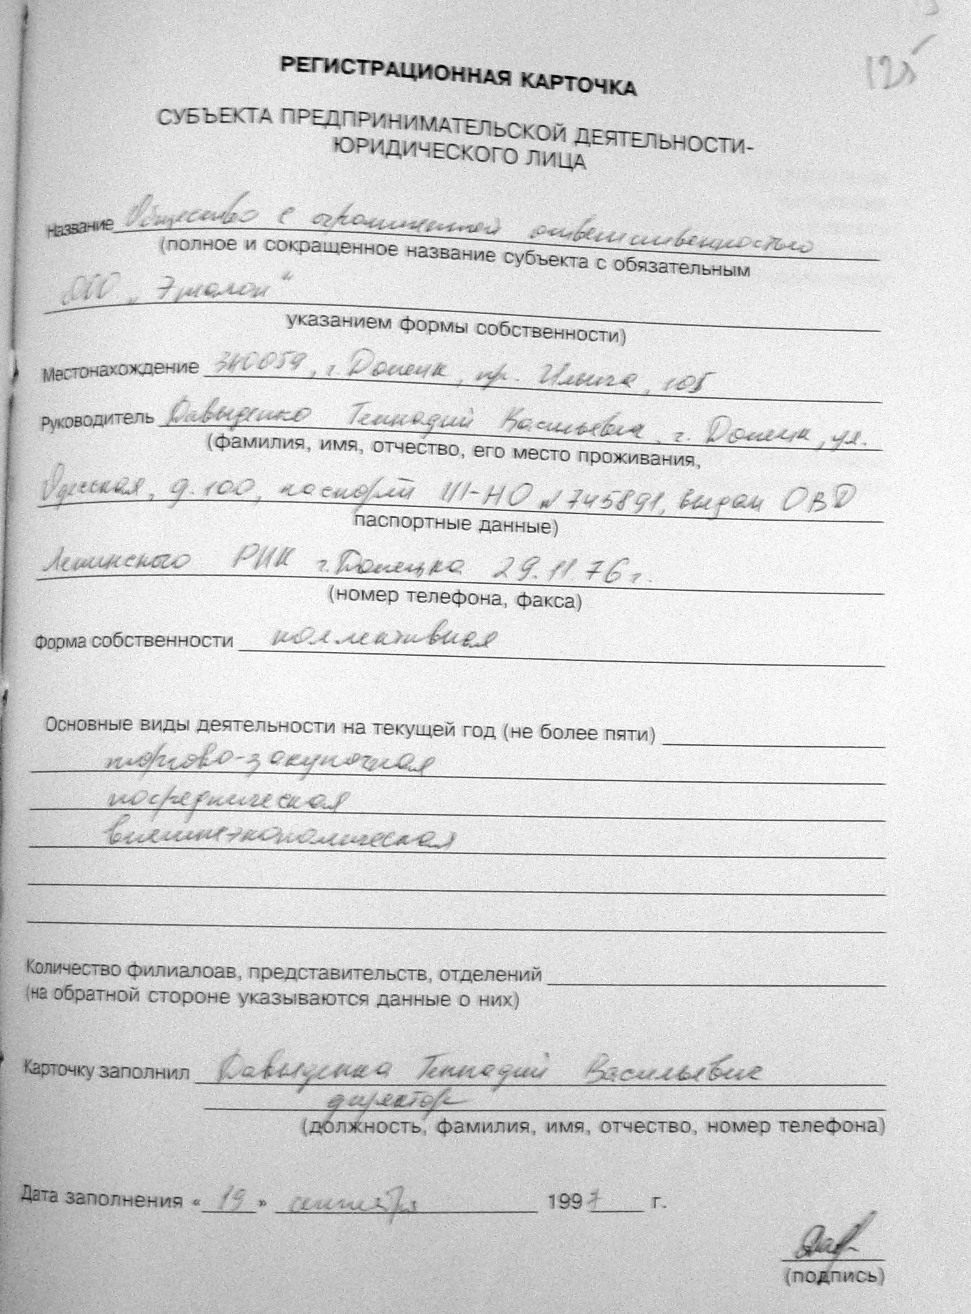 125
РЕГИСТРАЦИОННАЯ КАРТОЧКА
СУБЪЕКТА ПРЕДПРИНИМАТЕЛЬСКОЙ ДЕЯТЕЛЬНОСТИ-
ЮРИДИЧЕСКОГО ЛИЦА
Название Общество с ограниченной ответственностью
(полное и сокращенное название субъекта с обязательным
ООО „Эталон“
указанием формы собственности)
Местонахождение 340059, г. Донецк, пр. Ильича, 105
Руководитель Давыденко Геннадий Васильевич, г. Донецк, ул.
(фамилия, имя, отчество, его место проживания,
Одесская, д. 100, паспорт III-НО №745891, выдан ОВД
паспортные данные)
Ленинского РИК г. Донецка 29.11.76 г.
(номер телефона, факса)
Форма собственности коллективная
Основные виды деятельности на текущей год (не более пяти)
торгово-закупочная
посредническая
внешнеэкономическая
Количество филиалоав, представительств, отделений
(на обратной стороне указываются данные о них)
Карточку заполнил Давыденко Геннадий Васильевич
директор
(должность, фамилия, имя, отчество, номер телефона)
Дата заполнения « 19 » сентября 1997 г.
(подпись)